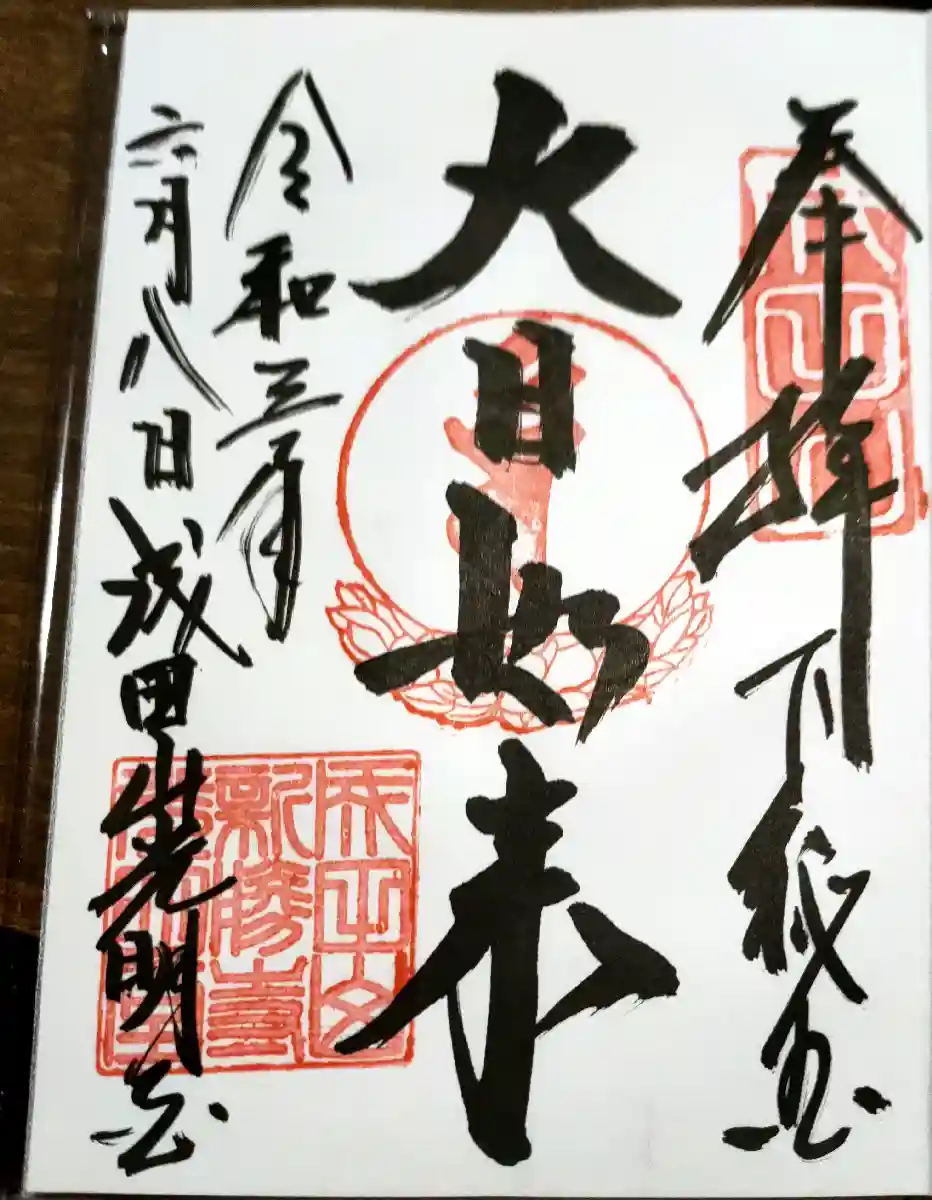 奉拝 下総国
大日如来
令和三年
六月八日 成田山光明堂
成田山
新勝寺